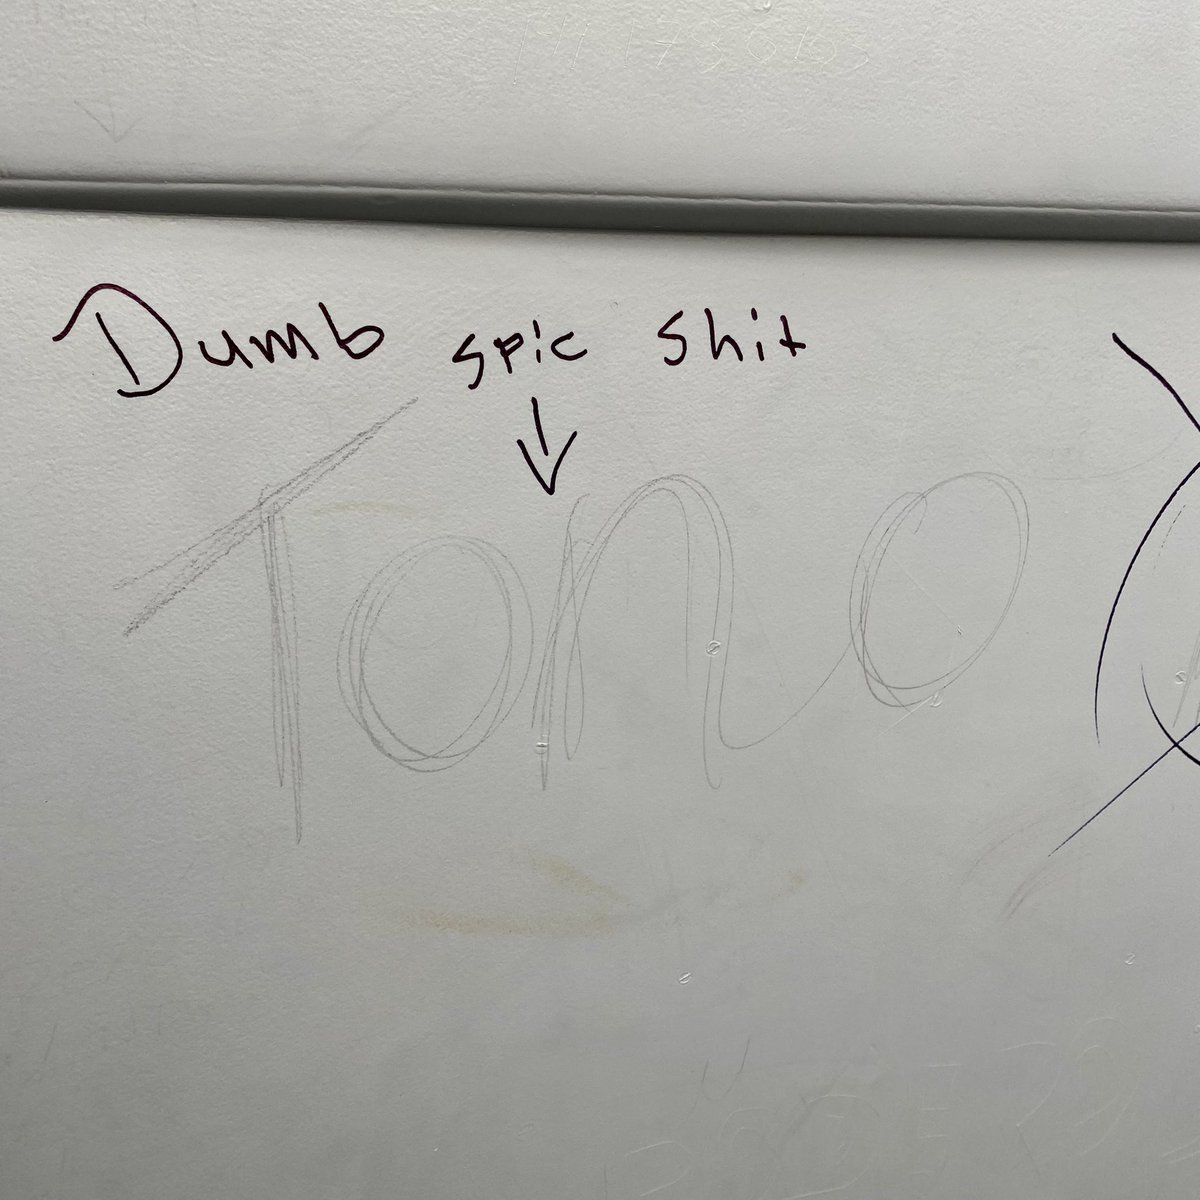 Dumb spic shit
Tono